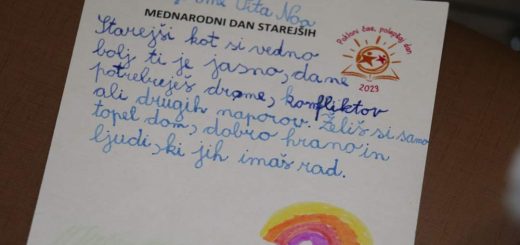 Vita Noa
MEDNARODNI DAN STAREJŠIH
Starejši kot si vedno
bolj ti je jasno, da ne
potrebuješ drame, konfliktov
ali drugih naporov. Želiš si samo
topel dom, dobro hrano in
ljudi, ki jih imaš rad.
Pokloni čas, polepšaj dan
2023